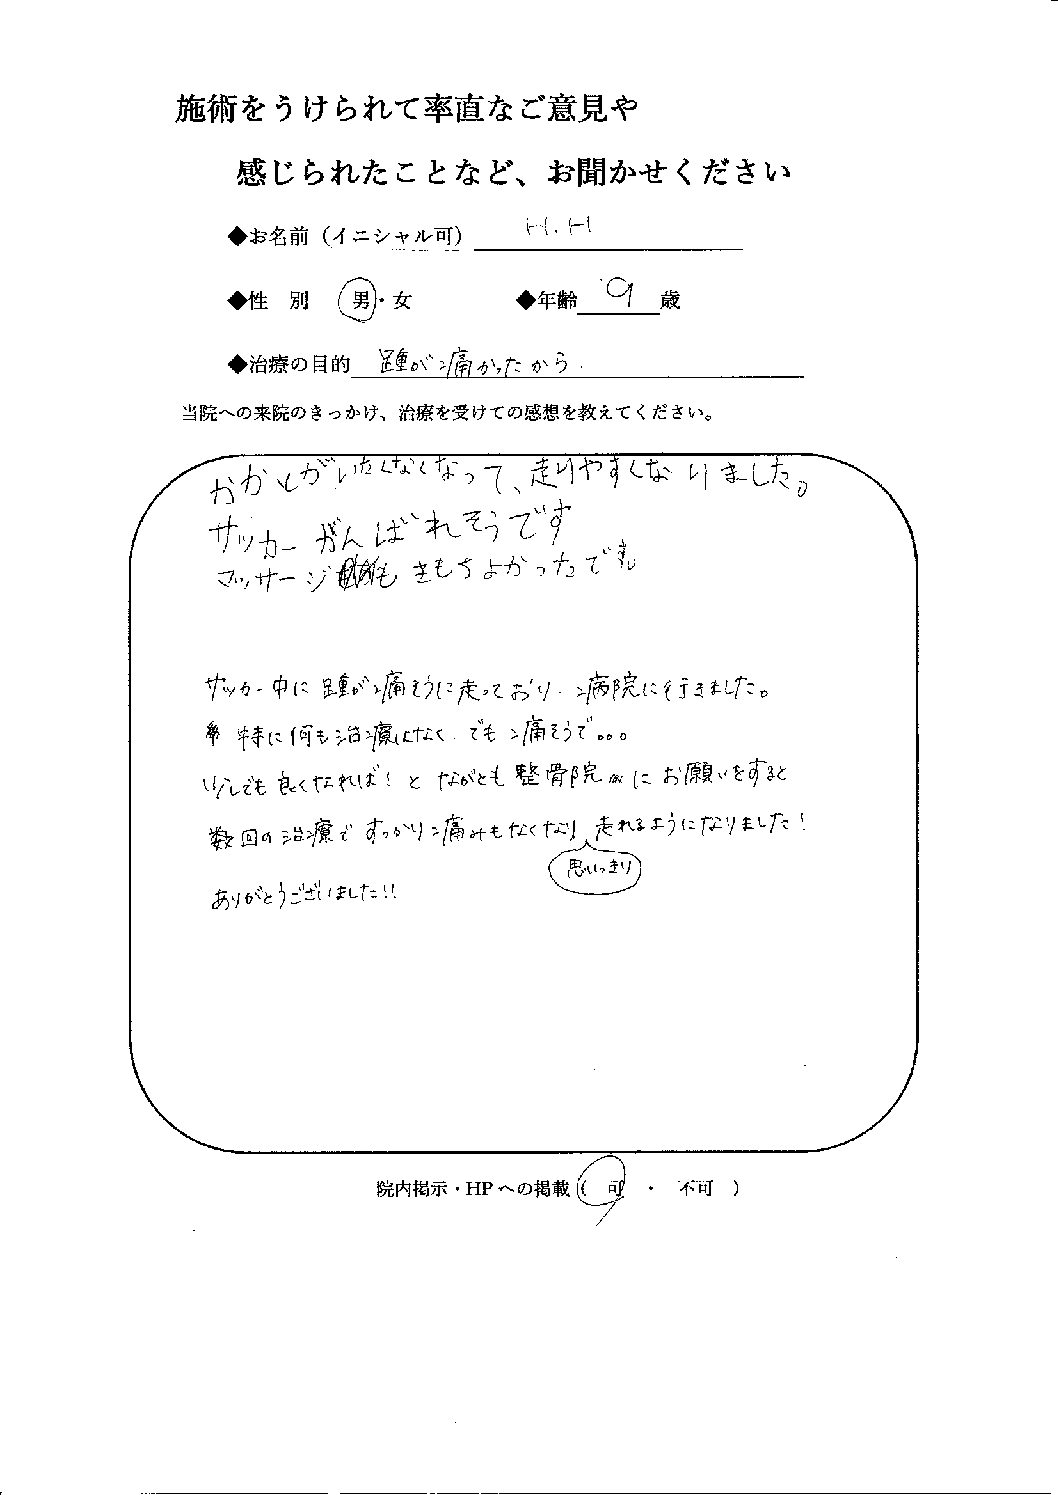 施術をうけられて率直なご意見や
感じられたことなど、お聞かせください
◆お名前（イニシャル可） H.H
◆性 別 男・女 ◆年齢 9 歳
◆治療の目的 踵が痛かったから.
当院への来院のきっかけ、治療を受けての感想を教えてください。
かかとがいたくなくなって、走りやすくなりました。
サッカーがんばれそうです
マッサージも きもちよかったです。
サッカー中に 踵が痛そうに走っており、病院に行きました。
特に何も治療はなく、でも痛そうで。。。
少しでも良くなれば！と ながとも整骨院にお願いをすると
数回の治療ですっかり痛みもなくなり 走れるようになりました！
思いっきり
ありがとうございました!!
院内掲示・HPへの掲載（ 可 ・ 不可 ）